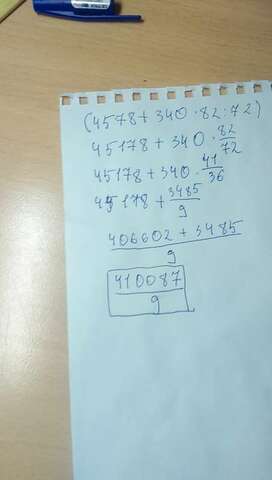 (4578+340·82:72)
45178+340·82/72
45178+340·41/36
45178+3485/9
406602+3485/9
410087/9